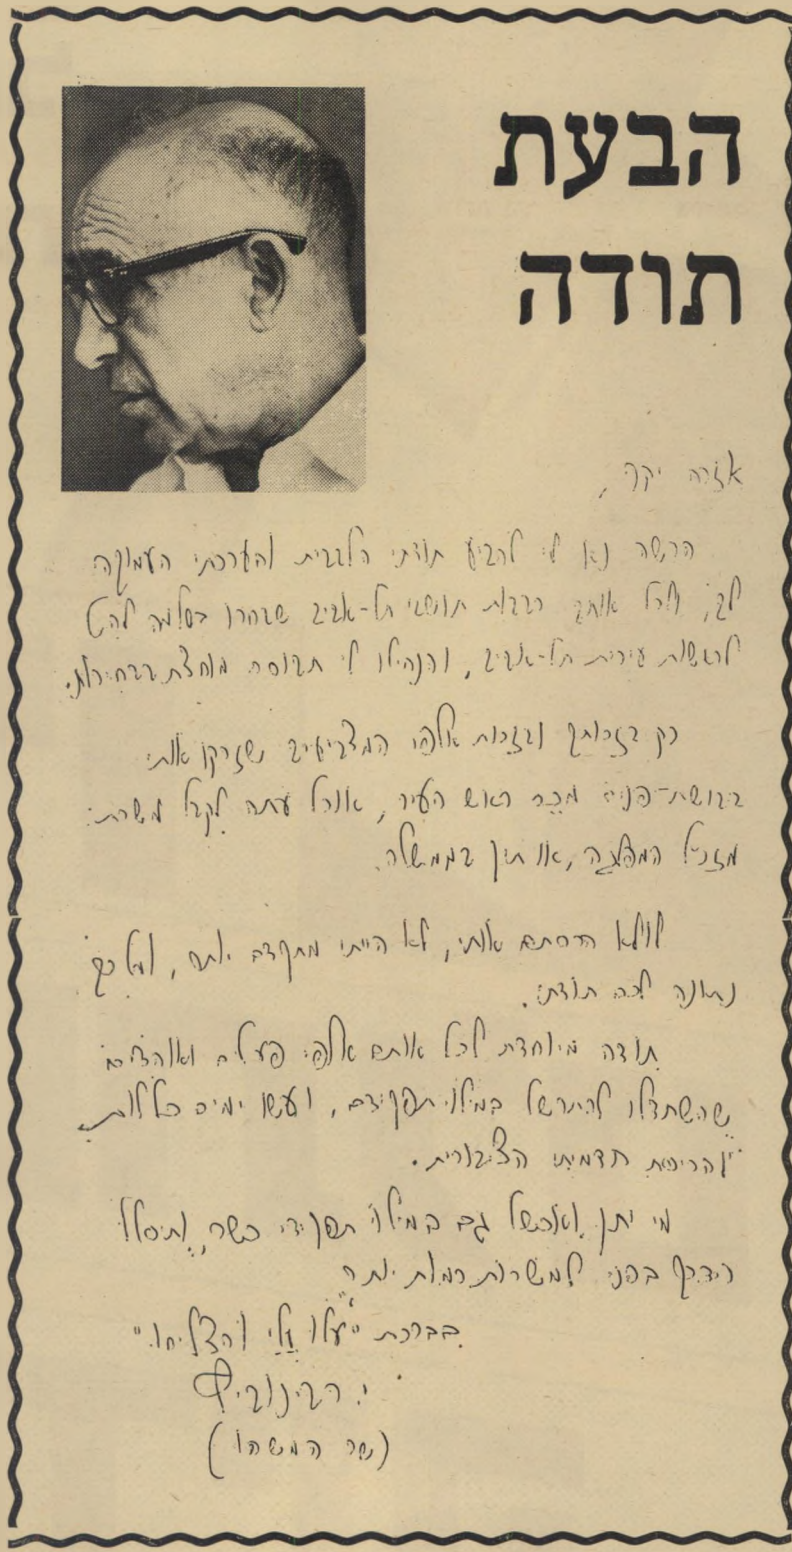 הבעת
תודה
אזרח יקר,
הרשה נא לי להביע תודתי הלבבית והערכתי העמוקה
לך, ולכל אותם רבבות תושבי תל-אביב שבחרו בשלמה להט
לראשות עירית תל-אביב, והנחילו לי תבוסה מוחצת בבחירות.
רק בזכותך ובזכות אלפי המצביעים שזרקו אותי
בבושת-פנים מכס ראש העיר, אוכל עתה לקבל משרת
מזכ"ל המפלגה, או תיק בממשלה.
לולא הדחתם אותי, לא הייתי מתקדם יותר, ועל כך
נתונה לכם תודתי.
תודה מיוחדת לכל אותם אלפי פעילים ואוהדים
שהשתדלו להתרשל במילוי תפקידם, ועשו ימים כלילות
להריסת תדמיתי הציבורית.
מי יתן ואכשל גם במילוי תפקידי כשר, ותיסלל
הדרך בפני למשרות רמות יותר
בברכת "עלו עלי והצליחו"
י. רבינוביץ
(שר המשהו)